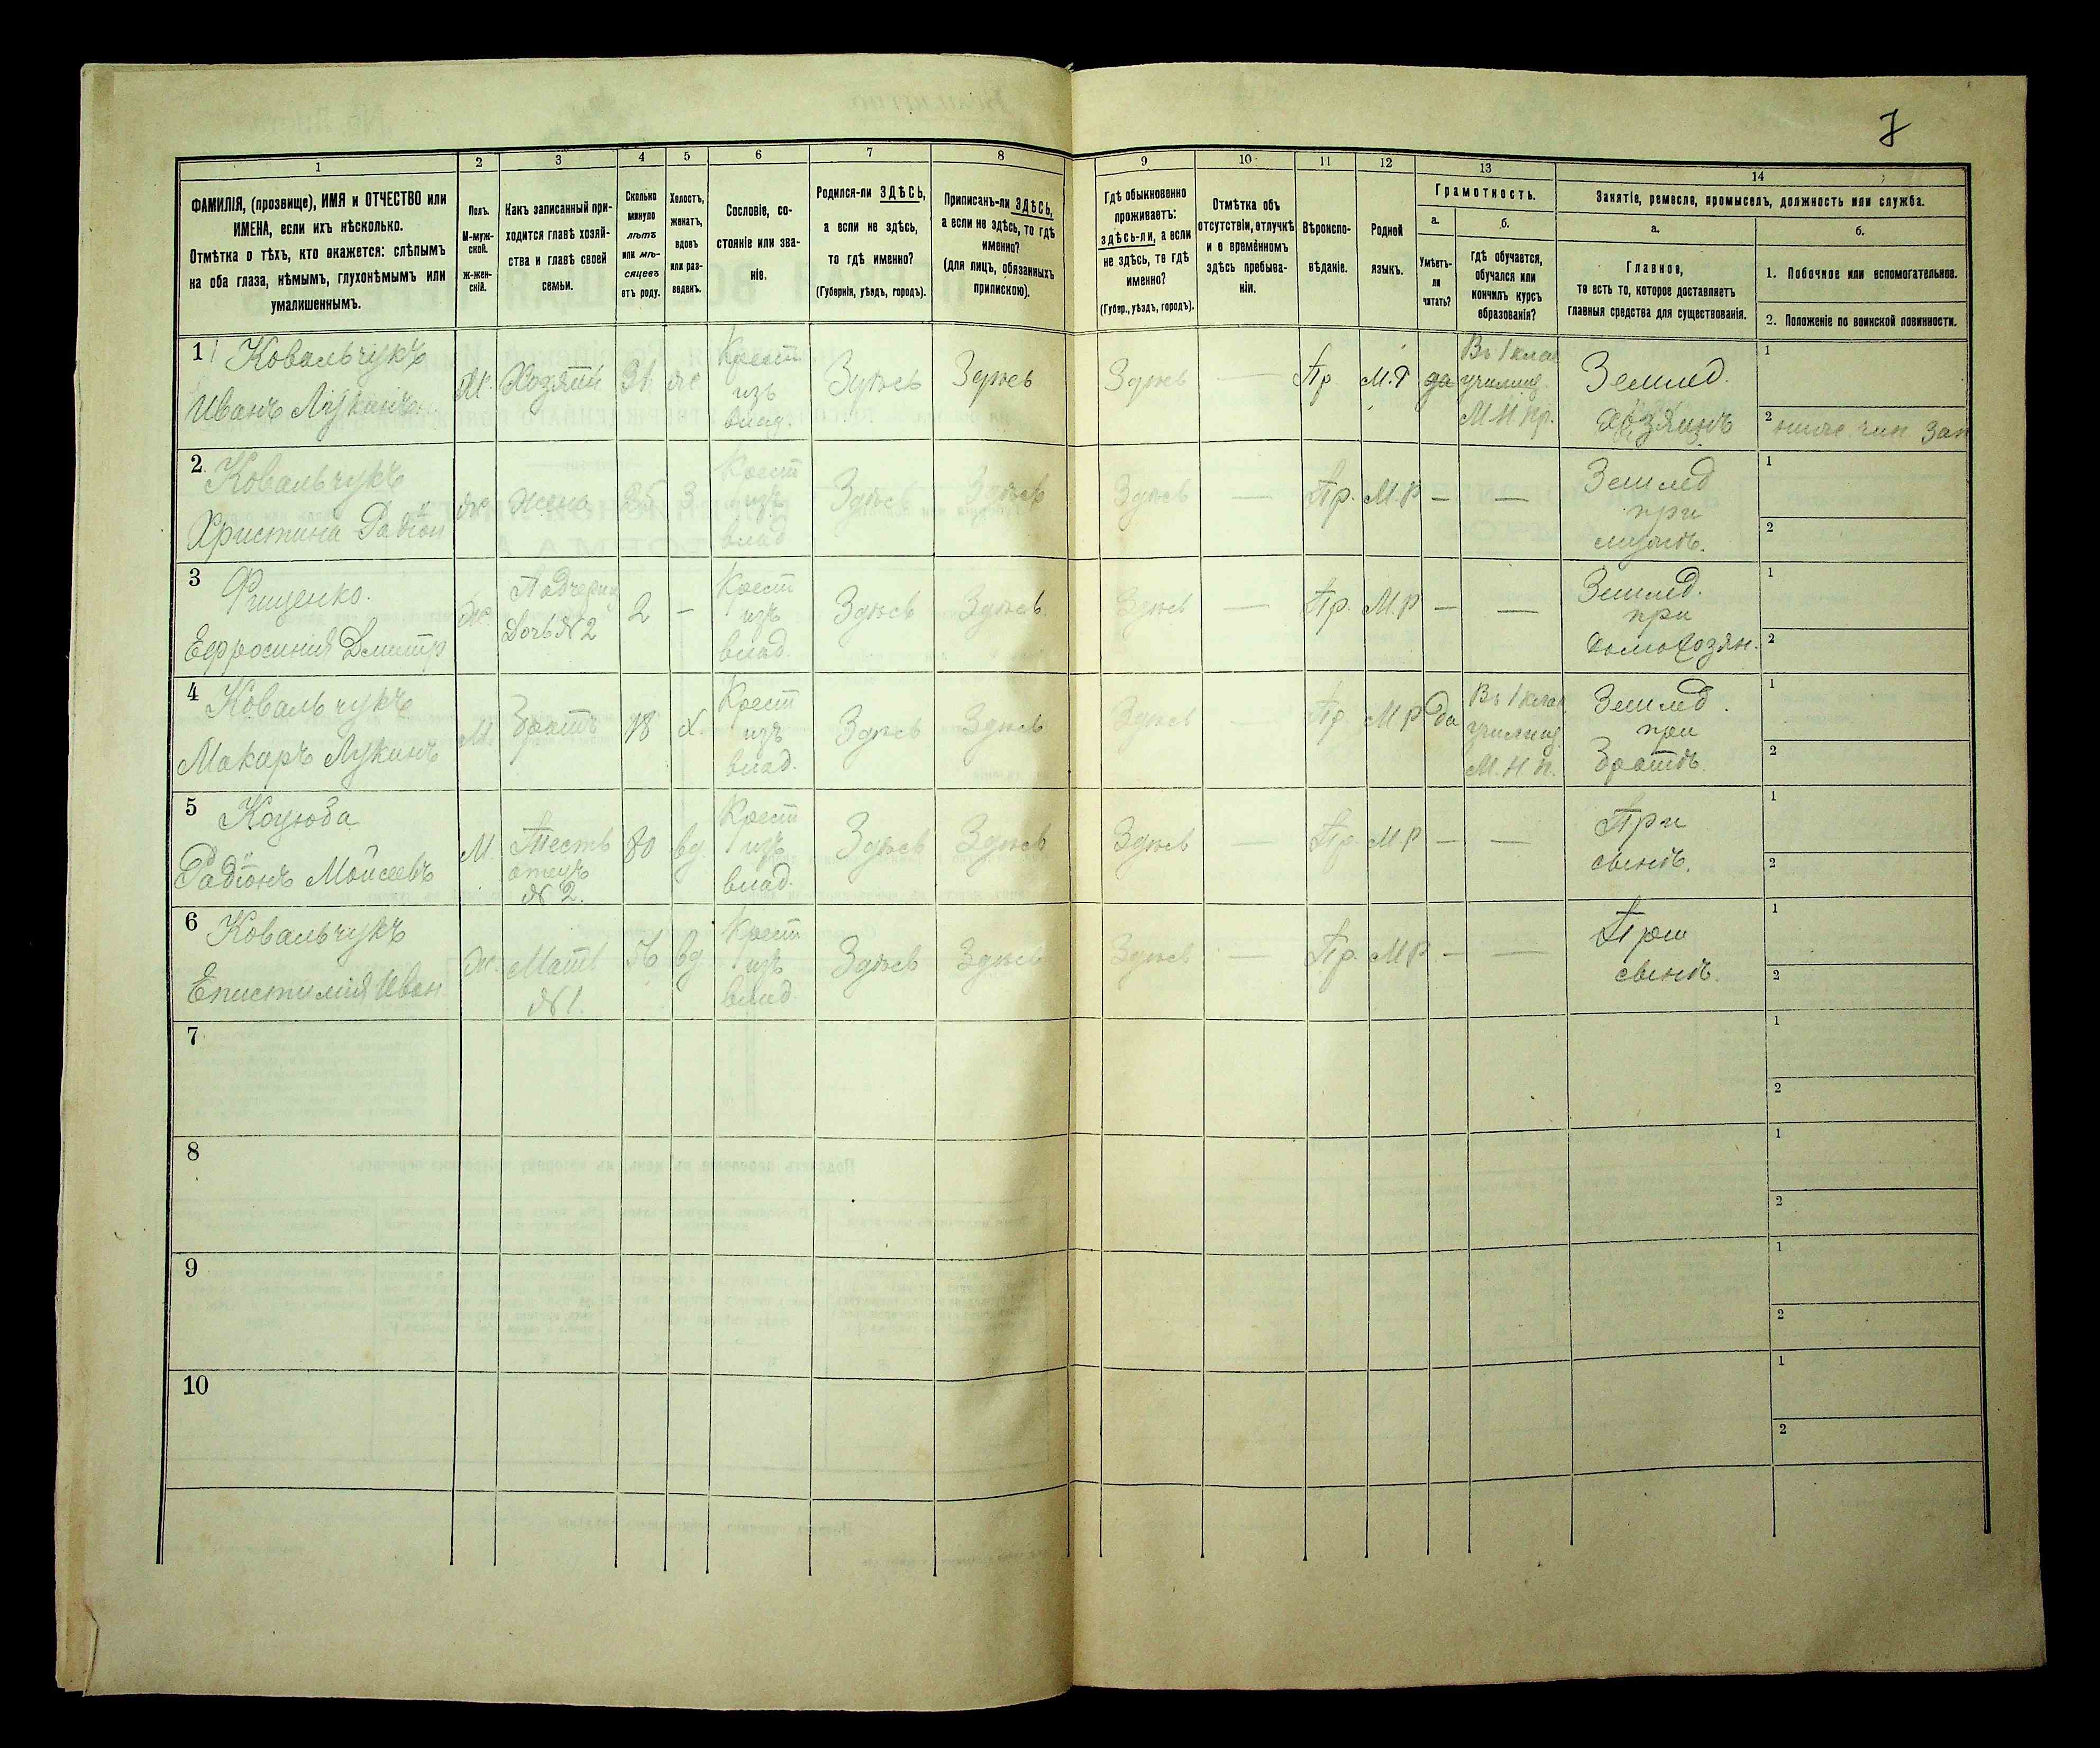 7
1 2 3 4 5 6 7 8 9 10 11 12 13 14
ФАМИЛІЯ, (прозвище), ИМЯ и ОТЧЕСТВО или
ИМЕНА, если ихъ нѣсколько.
Отмѣтка о тѣхъ, кто окажется: слѣпымъ
на оба глаза, нѣмымъ, глухонѣмымъ или
умалишеннымъ.
Полъ.
М-муж-
ской.
Ж-жен-
скій.
Какъ записанный при-
ходится главѣ хозяй-
ства и главѣ своей
семьи.
Сколько
минуло
лѣтъ
или мѣ-
сяцевъ
отъ роду.
Холостъ,
женатъ,
вдовъ
или раз-
веденъ.
Сословіе, со-
стояніе или зва-
ніе.
Родился-ли ЗДѢСЬ,
а если не здѣсь,
то гдѣ именно?
(Губернія, уѣздъ, городъ).
Приписанъ-ли ЗДѢСЬ,
а если не здѣсь, то гдѣ
именно?
(для лицъ, обязанныхъ
припискою).
Гдѣ обыкновенно
проживаетъ:
здѣсь-ли, а если
не здѣсь, то гдѣ
именно?
(Губер., уѣздъ, городъ).
Отмѣтка объ
отсутствіи, отлучкѣ
и о временномъ
здѣсь пребыва-
ніи.
Вѣроиспо-
вѣданіе.
Родной
языкъ.
Грамотность.
а.
Умѣетъ-
ли
читать?
б.
гдѣ обучается,
обучался или
кончилъ курсъ
образованія?
Занятіе, ремесло, промыселъ, должность или служба.
а.
Главное,
то есть то, которое доставляетъ
главныя средства для существованія.
б.
1. Побочное или вспомогательное.
2. Положеніе по воинской повинности.
1 Ковальчукъ
Иванъ Лукинъ
М. Хозяин 31 ж
Крест
изъ
влад.
Здѣсь Здѣсь Здѣсь — Пр. М.Р да
Въ 1 клас
училищ.
М Н пр.
Землед.
хозяинъ
1
2 нижн чин зап
2 Ковальчукъ
Христина Радіон
ж жена 25 з
Крест
изъ
влад
Здѣсь Здѣсь Здѣсь — Пр. М.Р — —
Землед
при
мужѣ.
1
2
3 Грищенко.
Ефросинія Дмитр
ж.
Падчериц
дочь № 2
2 —
Крест
изъ
влад.
Здѣсь Здѣсь Здѣсь — Пр. М.Р — —
Землед.
при
домохозян.
1
2
4 Ковальчукъ
Макаръ Лукинъ
М. Братъ 18 х.
Крест
изъ
влад.
Здѣсь Здѣсь Здѣсь — Пр. М Р да
Въ 1 клас
училищ
М. Н п.
Землед.
при
братѣ.
1
2
5 Коцюба
Радіонъ Мойсеевъ
М.
Тесть
отецъ
№ 2.
80 вд
Крест
изъ
влад.
Здѣсь Здѣсь Здѣсь — Пр. М Р — —
При
сынѣ.
1
2
6 Ковальчукъ
Епистимія Иван
ж.
Мать
№ 1.
56 вд
Крест
изъ
влад.
Здѣсь Здѣсь Здѣсь — Пр. М Р — —
При
сынѣ.
1
2
7
1
2
8
1
2
9
1
2
10
1
2